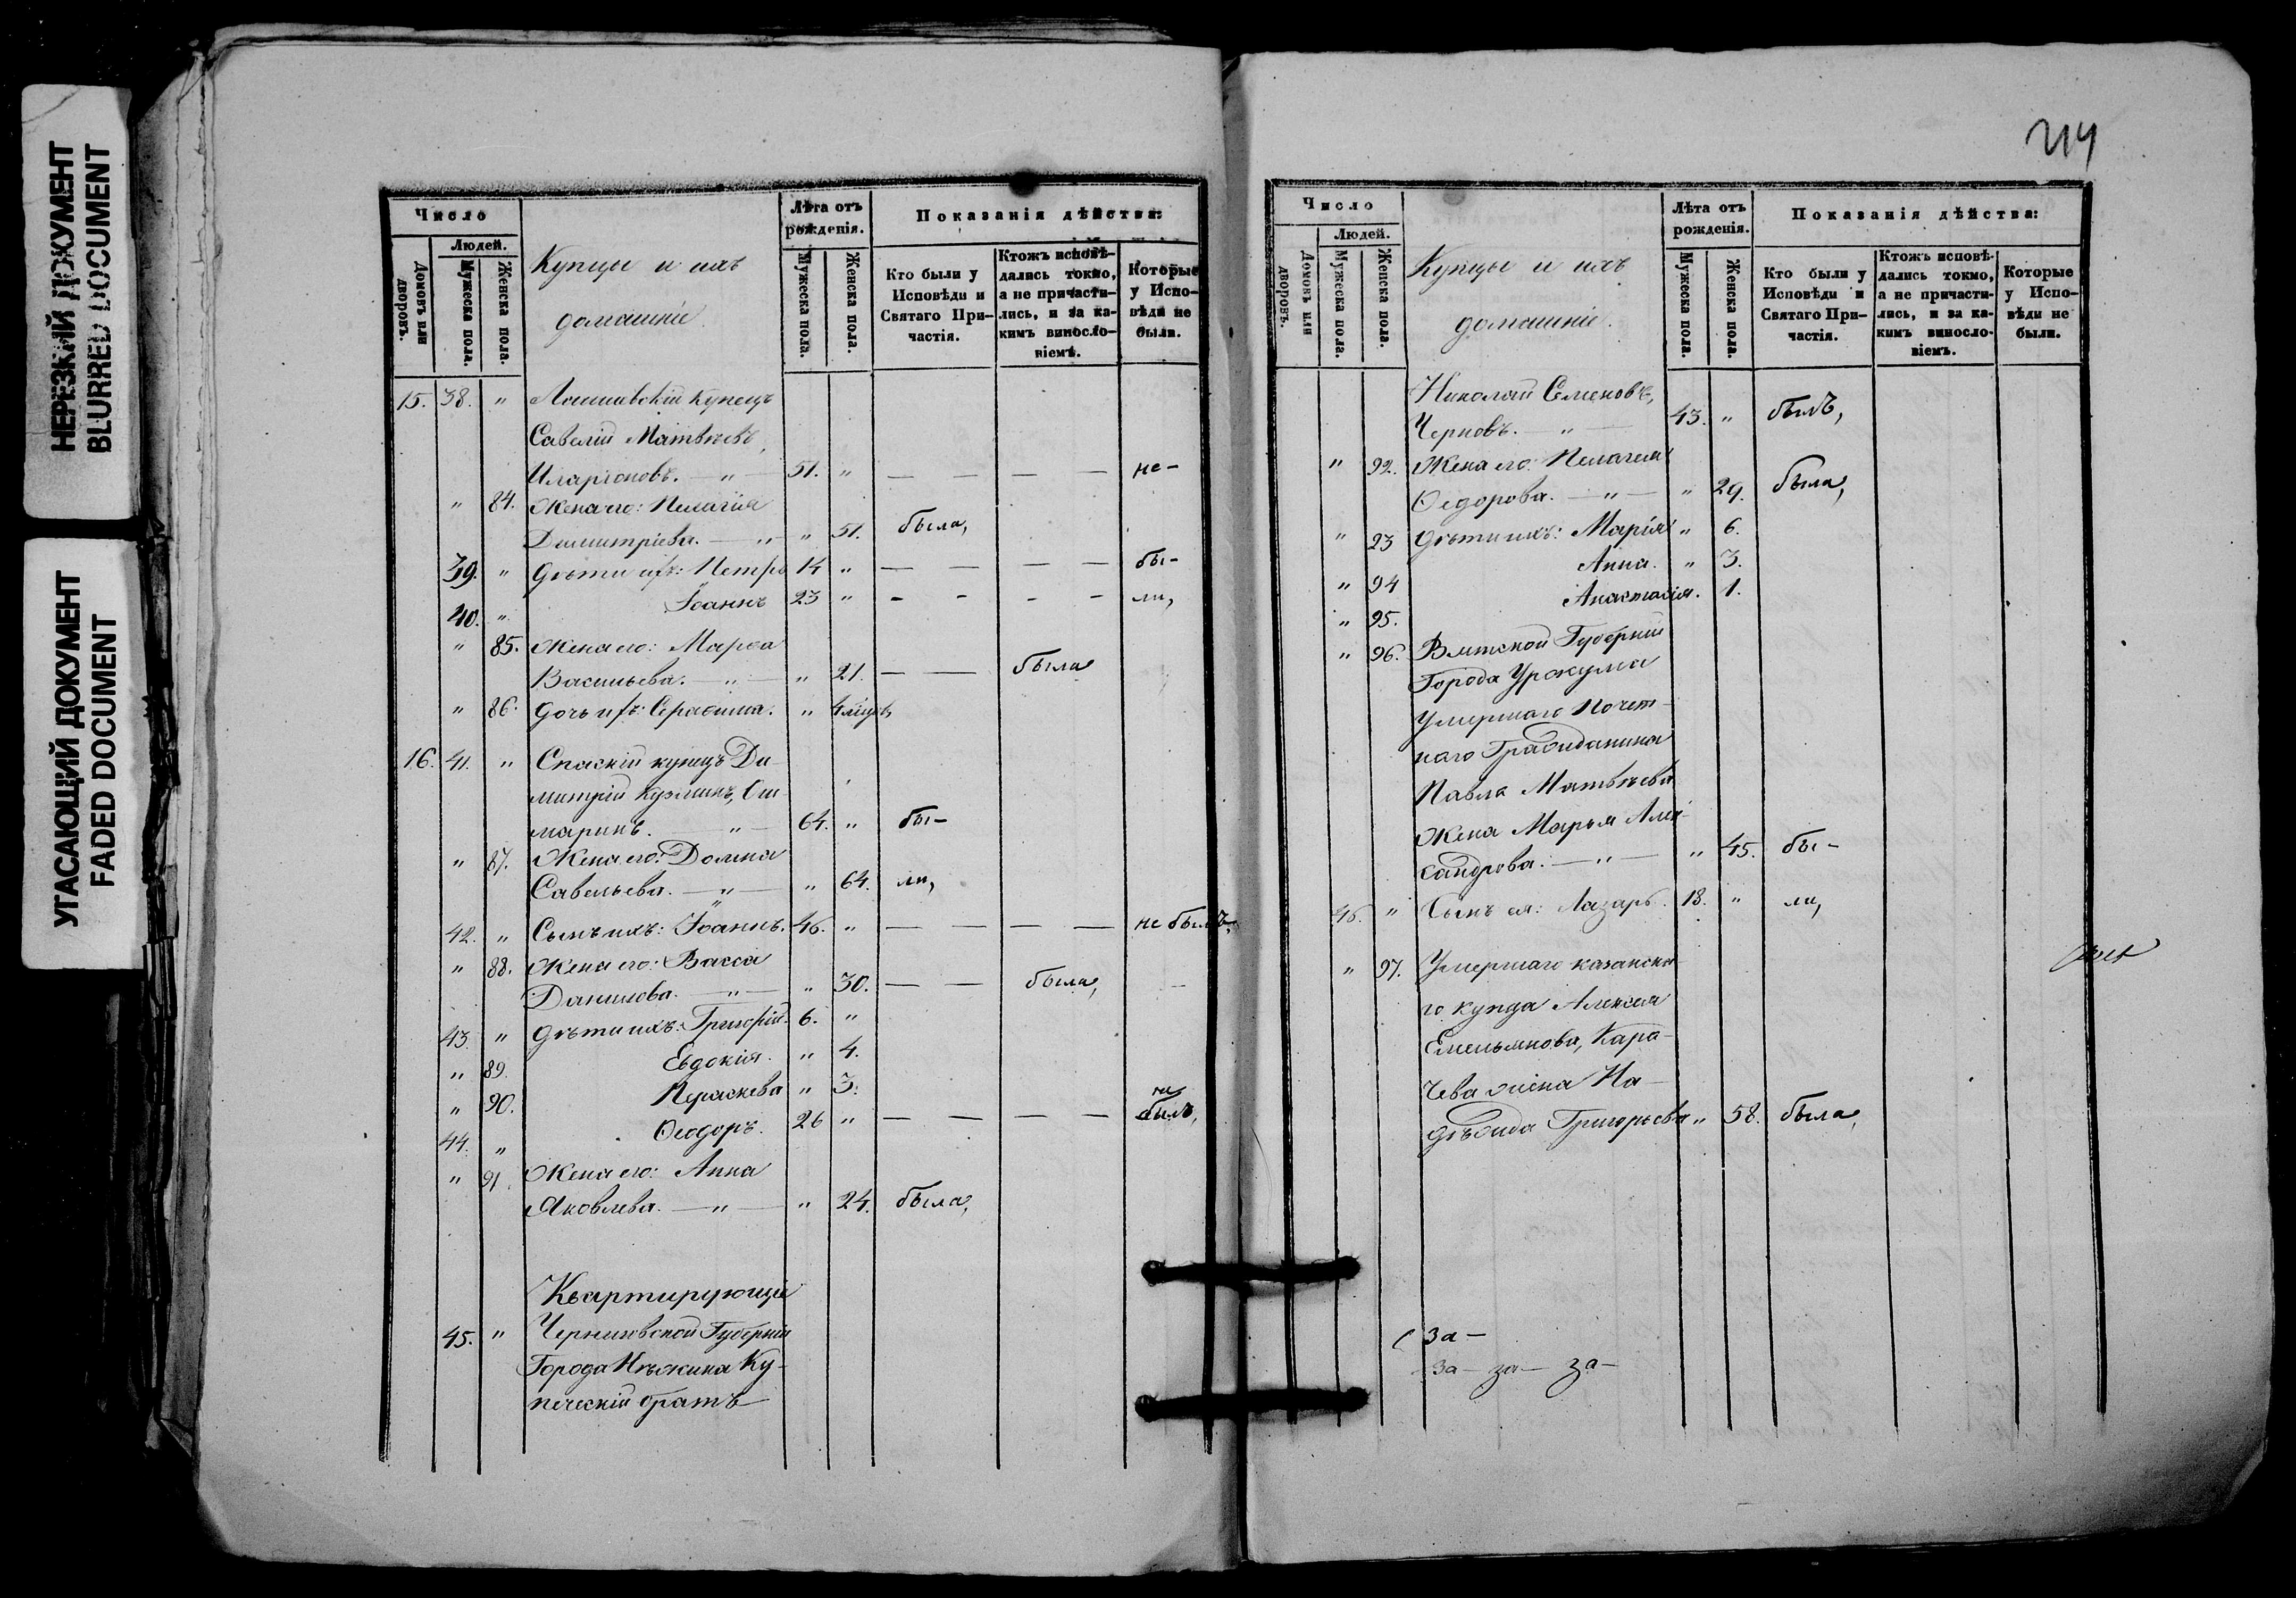 НЕРЕЗКИЙ ДОКУМЕНТ
BLURRED DOCUMENT
УГАСАЮЩИЙ ДОКУМЕНТ
FADED DOCUMENT
Число
Людей.
Домовъ или дворовъ.
Мужеска пола.
Женска пола.
Купцы и ихъ
домашніе.
Лѣта отъ
рожденія.
Мужеска пола.
Женска пола.
Показанія дѣйства:
Кто были у
Исповѣди и
Святаго При-
частія.
Ктожъ исповѣ-
дались токмо,
а не причасти-
лись, и за ка-
кимъ винносло-
віемъ.
Которые
у Испо-
вѣди не
были.
15. 38. " Лаишевскій купецъ
Савелій Матвѣевъ,
Иларіоновъ. — " — 51. " — — — — не-
" 84. Жена его: Пелагія
Димитріева. — " — " 51. была,
39. " Дѣти ихъ: Петръ 14 " — — — — бы-
40. " Іоаннъ 23 " - - - - ли,
" 85. Жена его: Марѳа
Васильева. — " — " 21. — — была
" 86. Дочь ихъ: Серафима. " 4 мѣсяц.
16. 41. " Спаскій купецъ Ди-
митрій Кузминъ,
маринъ. — " — 64. " бы-
" 87. Жена его: Домна
Савельева. — " — " 64. ли,
42. " Сынъ ихъ: Іоаннъ. 46. " — — — — не былъ,
" 88. Жена его: Васса
Данилова. — " — " 30. — — была, —
43. " Дѣти ихъ: Григорій. 6. "
" 89. Евдокія. " 4.
" 90. Параскева " 3.
44. " Ѳеодоръ. 26 " — — — — не былъ,
" 91. Жена его: Анна
Яковлева. — " — " 24. была,
Квартирующіе
45. " Черниговской Губерніи
Города Нѣжина Ку-
печескій братъ
214
Число
Людей.
Домовъ или дворовъ.
Мужеска пола.
Женска пола.
Купцы и ихъ
домашніе.
Лѣта отъ
рожденія.
Мужеска пола.
Женска пола.
Показанія дѣйства:
Кто были у
Исповѣди и
Святаго При-
частія.
Ктожъ исповѣ-
дались токмо,
а не причасти-
лись, и за ка-
кимъ винносло-
віемъ.
Которые
у Испо-
вѣди не
были.
Николай Семеновъ,
Черновъ. — " — 43. " былъ,
" 92. Жена его: Пелагея
Ѳедорова. — " — " 29. была,
" 23 Дѣти ихъ: Марія " 6.
" 94 Анна. " 3.
" 95. Анастасія. 1.
" 96. Вятской Губерніи
Города Уржума
Умершаго Почет-
наго Гражданина
Павла Матвѣева
Жена Марья Алек-
сандрова. — " — " 45. бы-
46. " Сынъ ея: Лазарь. 18. " ли,
" 97. Умершаго казанска-
го купца Алексея
Емельянова, Кара-
чева жена На-
дѣжда Григорьева " 58. была,
за —
за — за — за —